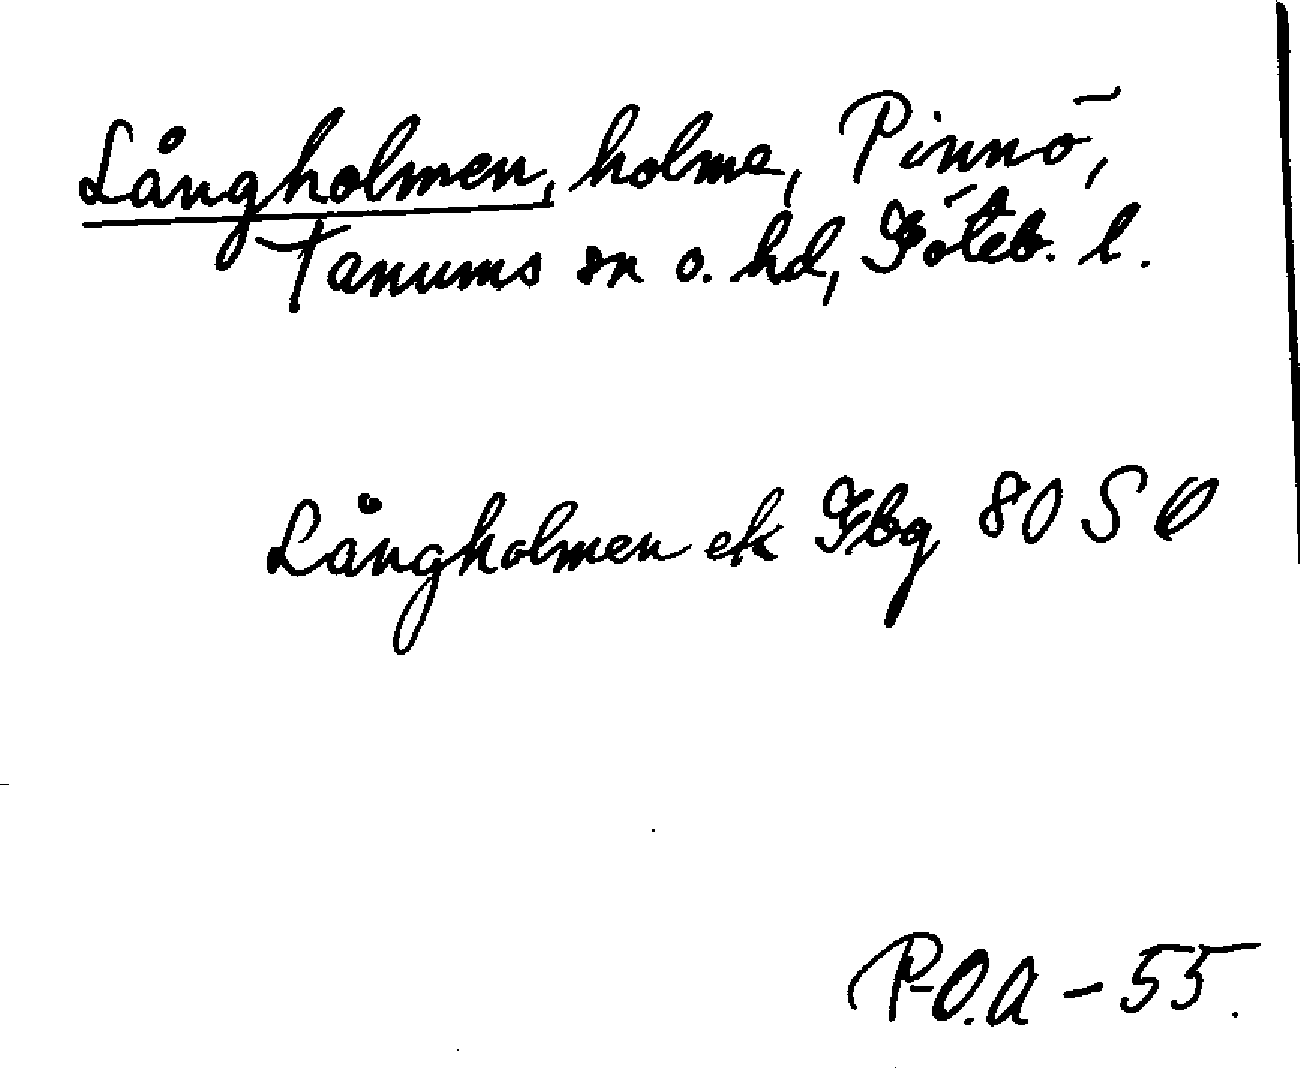 Långholmen, holme, Pinnö,
Tanums sn o. hd, Göteb. l.
Långholmen ek Gbg 80 SO
P-O.A - 55.